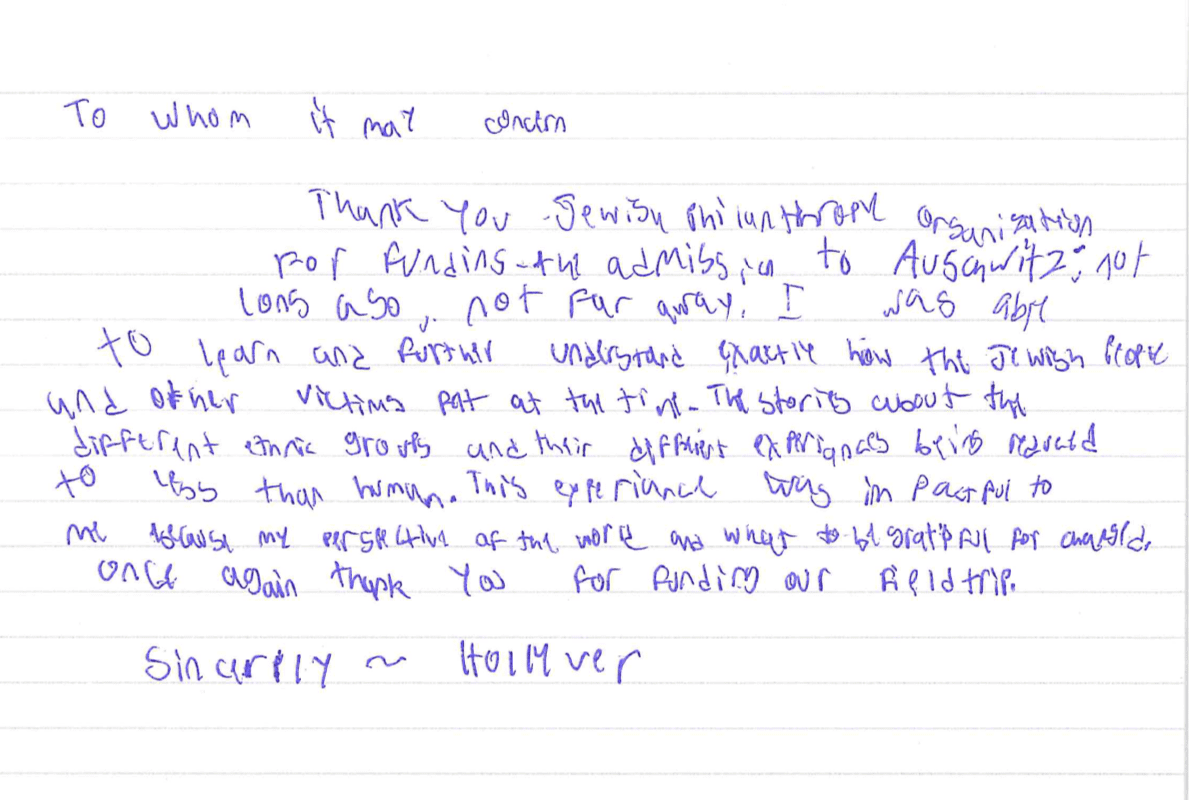 To whom it may concern
Thank you Jewish philanthropy organization
For funding the admission to Auschwitz: not
long ago, not far away. I was able
to learn and further understand exactly how the Jewish people
and other victims felt at the time. The stories about the
different ethnic groups and their different experiances being reduced
to less than human. This experiance was impactful to
me because my perspective of the world and what to be gratiful for changed.
Once again thank you for funding our field trip.
Sincerely ~